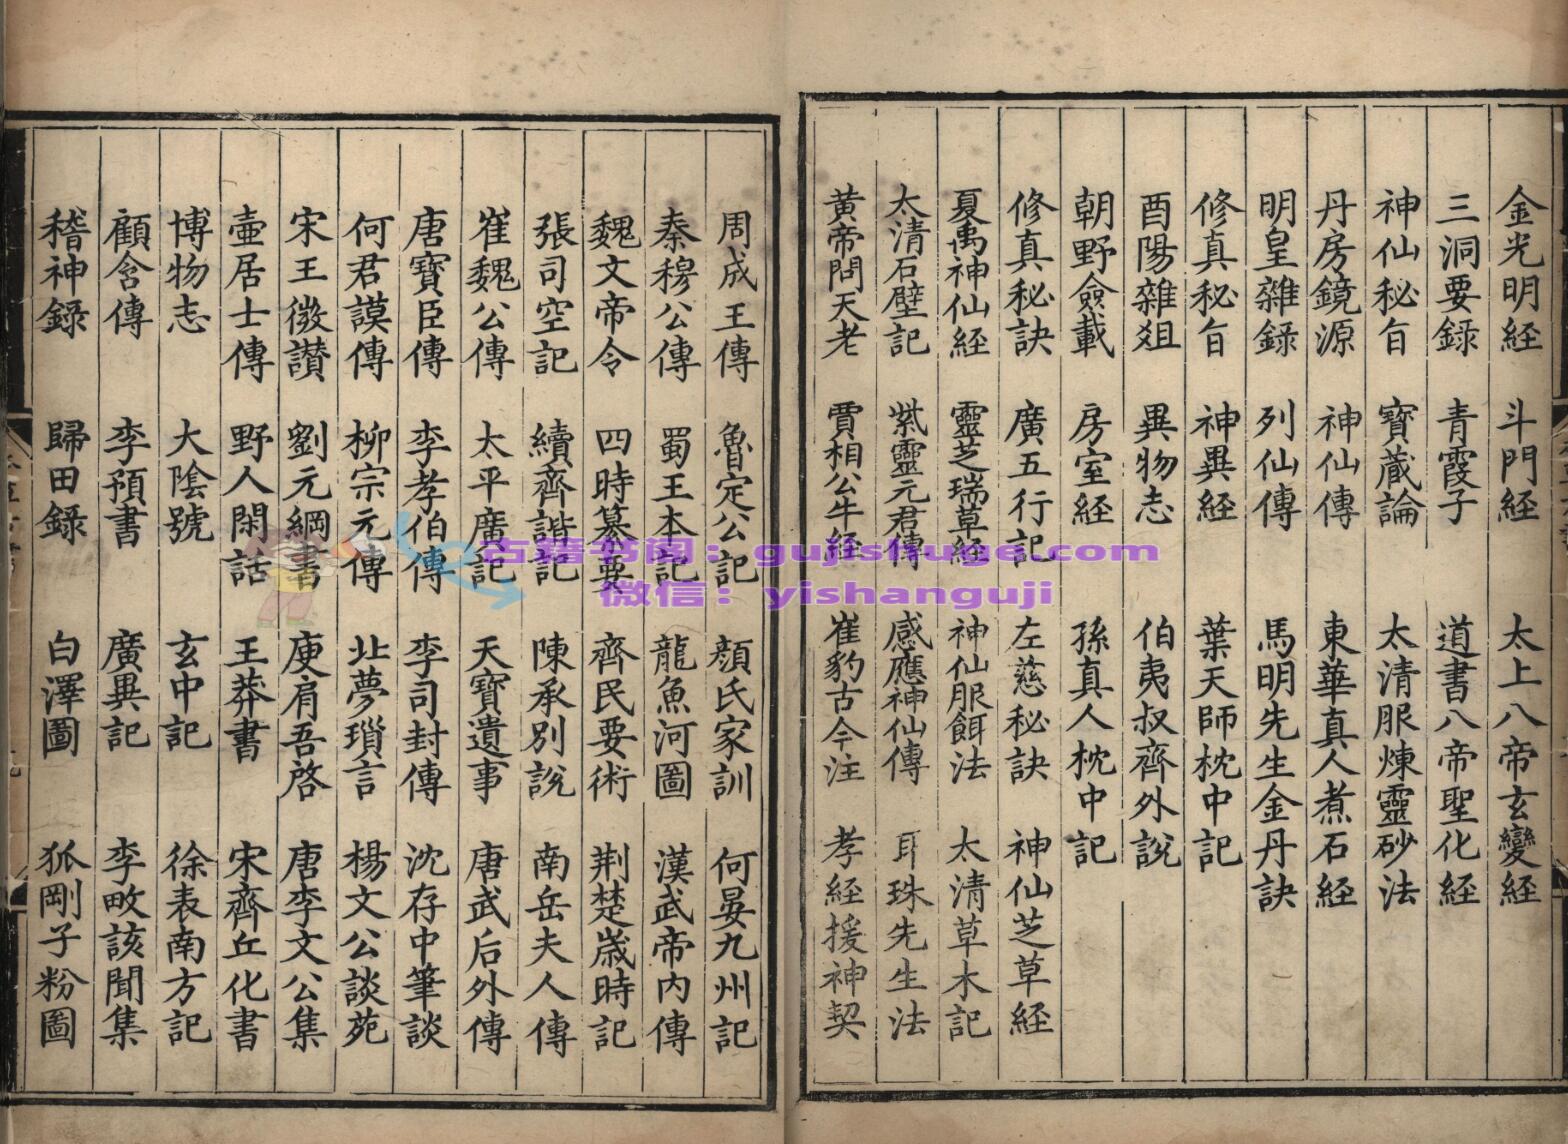 金光明経 斗門経 太上八帝玄變経
三洞要録 青霞子 道書八帝聖化経
神仙秘旨 寶蔵論 太清服煉靈砂法
丹房鏡源 神仙傳 東華真人煮石経
明皇雜録 列仙傳 馬明先生金丹訣
修真秘旨 神異経 葉天師枕中記
酉陽雜俎 異物志 伯夷叔齊外說
朝野僉載 房室経 孫真人枕中記
修真秘訣 廣五行記 左慈秘訣 神仙芝草経
夏禹神仙経 靈芝瑞草経 神仙服餌法 太清草木記
太清石壁記 紫靈元君傳 感應神仙傳 耳珠先生法
黄帝問天老 賈相公牛経 崔豹古今注 孝経援神契
周成王傳 魯定公記 顔氏家訓 何晏九州記
秦穆公傳 蜀王本記 龍魚河圖 漢武帝内傳
魏文帝令 四時纂要 齊民要術 荆楚歳時記
張司空記 續齊諧記 陳承別說 南岳夫人傳
崔魏公傳 太平廣記 天寶遺事 唐武后外傳
唐寶臣傳 李孝伯傳 李司封傳 沈存中筆談
何君謨傳 柳宗元傳 北夢瑣言 楊文公談苑
宋王微讃 劉元綱書 庾肩吾啓 唐李文公集
壷居士傳 野人閑話 王莽書 宋齊丘化書
博物志 大隂號 玄中記 徐表南方記
顧含傳 李預書 廣異記 李畋該聞集
稽神録 歸田録 白澤圖 狐剛子粉圖
古籍书阁：gujishuge.com
微信：yishanguji